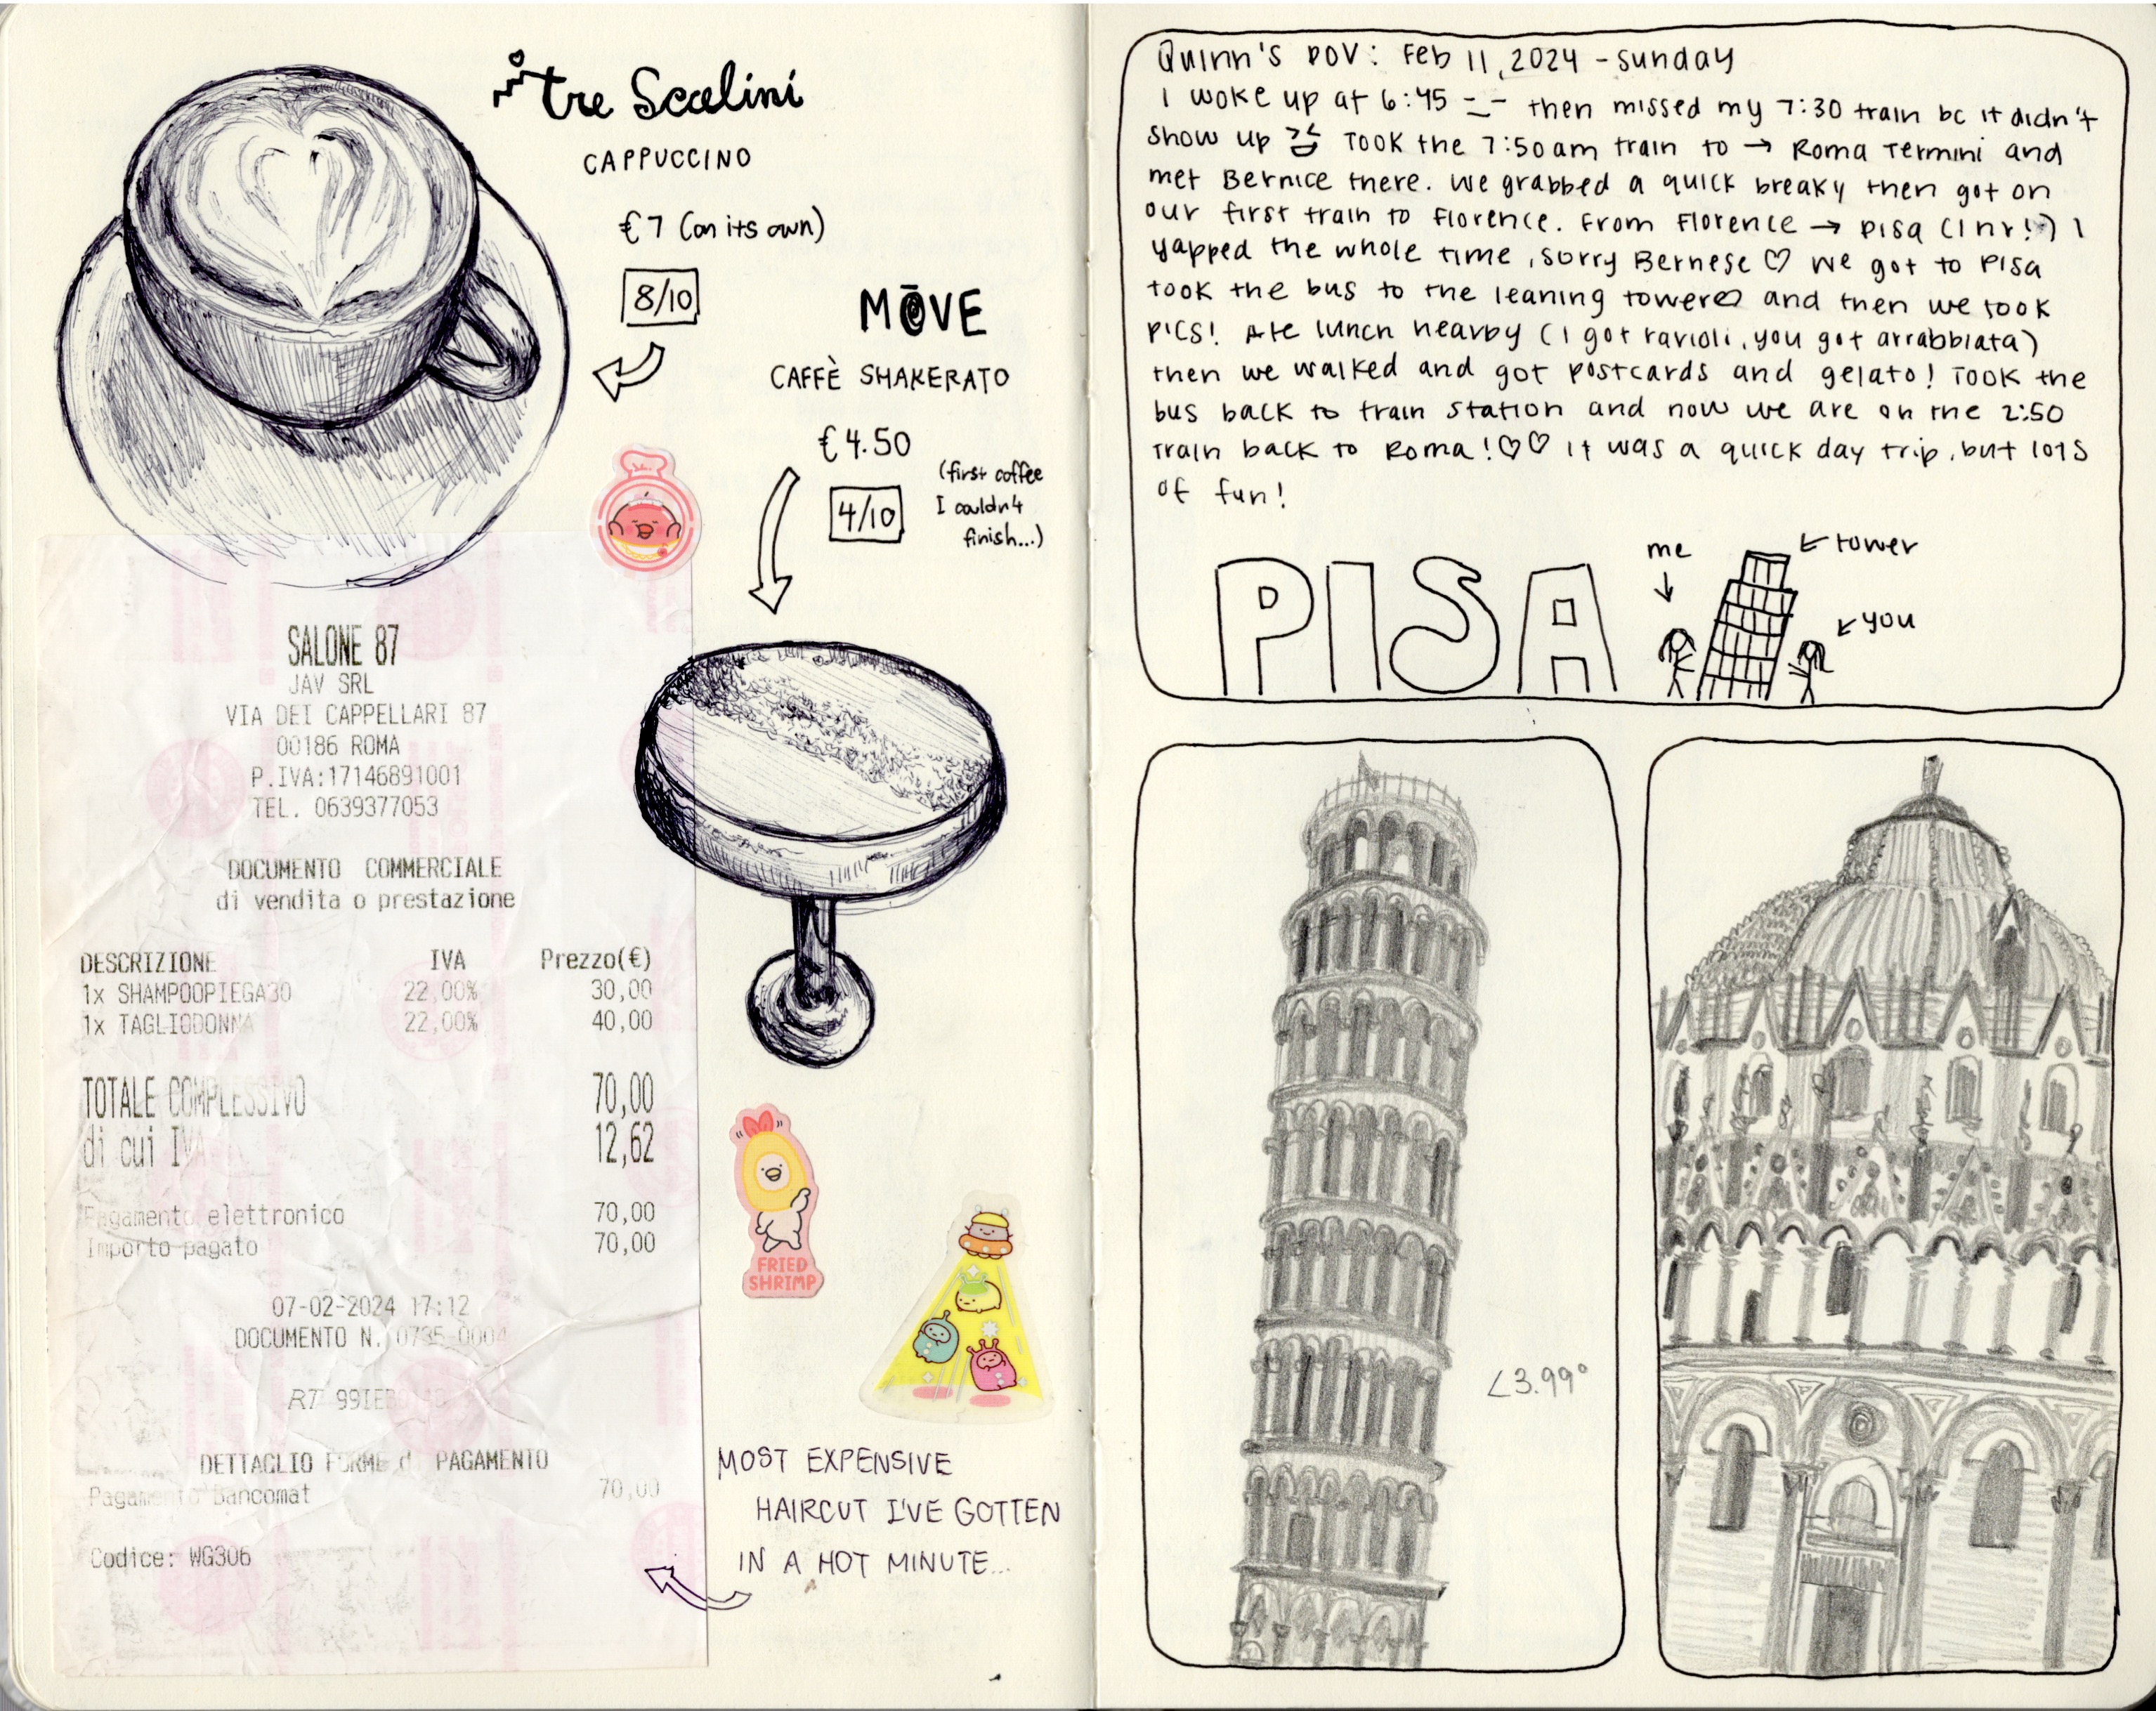 tre Scalini
CAPPUCCINO
€7 (on its own)
8/10
MŌVE
CAFFÈ SHAKERATO
€4.50
(first coffee
I couldn't
finish...)
4/10
SALONE 87
JAV SRL
VIA DEI CAPPELLARI 87
00186 ROMA
P.IVA:17146891001
TEL. 0639377053
DOCUMENTO COMMERCIALE
di vendita o prestazione
DESCRIZIONE IVA Prezzo(€)
1x SHAMPOOPIEGA30 22,00% 30,00
1x TAGLIODONNA 22,00% 40,00
TOTALE COMPLESSIVO 70,00
di cui IVA 12,62
Pagamento elettronico 70,00
Importo pagato 70,00
07-02-2024 17:12
DOCUMENTO N. 0735-0004
RT
DETTAGLIO FORME di PAGAMENTO
Pagamento Bancomat 70,00
Codice: WG306
FRIED
SHRIMP
MOST EXPENSIVE
HAIRCUT I'VE GOTTEN
IN A HOT MINUTE...
Quinn's POV: Feb 11, 2024 - Sunday
I woke up at 6:45 -_- then missed my 7:30 train bc it didn't
show up Took the 7:50am train to → Roma Termini and
met Bernice there. We grabbed a quick breaky then got on
our first train to Florence. From Florence → Pisa (1 hr!) I
yapped the whole time, sorry Bernese ♡ We got to Pisa
took the bus to the leaning tower and then we took
pics! Ate lunch nearby (I got ravioli, you got arrabbiata)
then we walked and got postcards and gelato! Took the
bus back to train station and now we are on the 2:50
train back to Roma! ♡♡ It was a quick day trip, but lots
of fun!
PISA
me
← tower
← you
∠3.99°